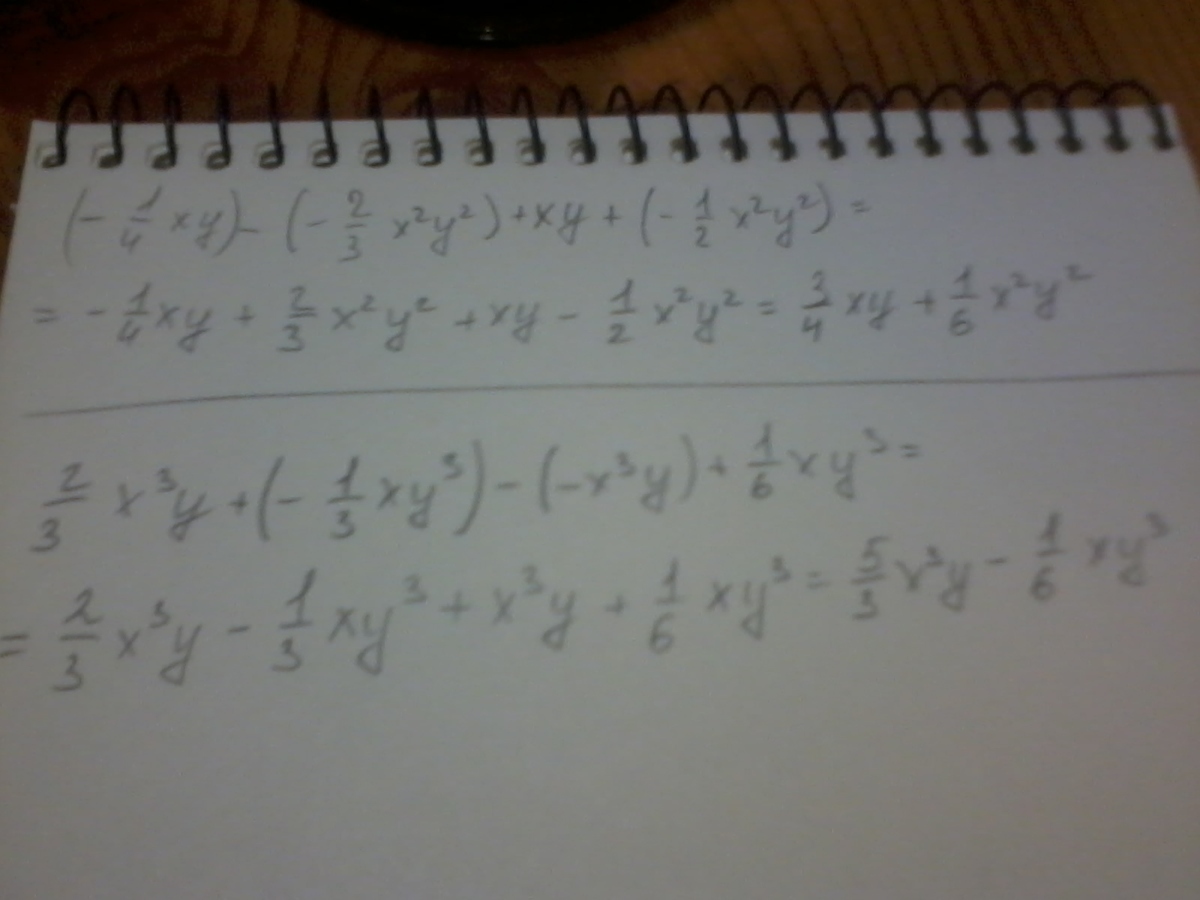 (- 1/4 xy) - (- 2/3 x²y²) + xy + (- 1/2 x²y²) =
= - 1/4 xy + 2/3 x²y² + xy - 1/2 x²y² = 3/4 xy + 1/6 x²y²
2/3 x³y + (- 1/3 xy³) - (-x³y) + 1/6 xy³ =
= 2/3 x³y - 1/3 xy³ + x³y + 1/6 xy³ = 5/3 x³y - 1/6 xy³